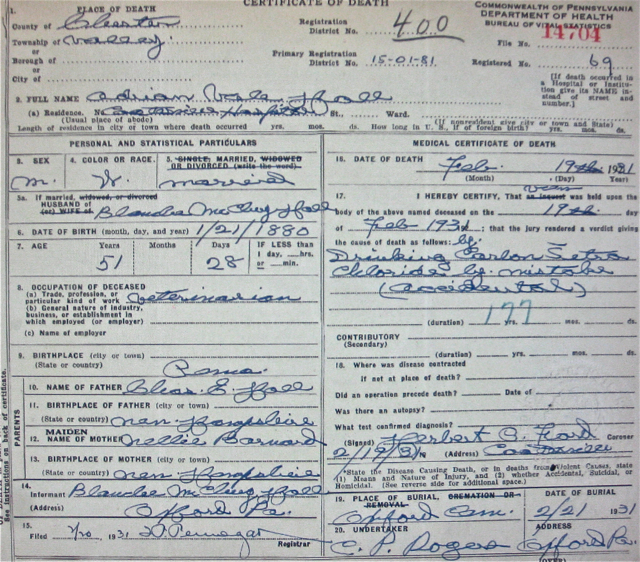 CERTIFICATE OF DEATH
1. PLACE OF DEATH
County of Chester
Township of Valley
or
Borough of
or
City of
Registration
District No. 400
Primary Registration
District No. 15-01-81
COMMONWEALTH OF PENNSYLVANIA
DEPARTMENT OF HEALTH
BUREAU OF VITAL STATISTICS
File No. 14704
Registered No. 69
[If death occurred in a Hospital or Institution give its NAME instead of street and number.]
2. FULL NAME Adrian Hall
(a) Residence. No. Coatesville Hospital St., Ward.
(Usual place of abode) (If nonresident give city or town and State)
Length of residence in city or town where death occurred yrs. mos. ds. How long in U. S., if of foreign birth? yrs. mos. ds.
PERSONAL AND STATISTICAL PARTICULARS
3. SEX
M.
4. COLOR OR RACE.
W.
5. SINGLE, MARRIED, WIDOWED
OR DIVORCED (write the word)
married
5a. If married, widowed, or divorced
HUSBAND of
(or) WIFE of Blanche McClung Hall
6. DATE OF BIRTH (month, day, and year) 1/21/1880
7. AGE Years Months Days IF LESS than
51 28 1 day, ... hrs.
or ... min.
8. OCCUPATION OF DECEASED
(a) Trade, profession, or
particular kind of work Veterinarian
(b) General nature of industry,
business, or establishment in
which employed (or employer)
(c) Name of employer
9. BIRTHPLACE (city or town)
(State or country) Penna.
PARENTS
10. NAME OF FATHER Chas. E. Hall
11. BIRTHPLACE OF FATHER (city or town)
(State or country) New Hampshire
12. MAIDEN NAME OF MOTHER Nellie Barnard
13. BIRTHPLACE OF MOTHER (city or town)
(State or country) New Hampshire
14.
Informant Blanche McClung Hall
(Address) Oxford Pa.
15.
1931
Registrar
MEDICAL CERTIFICATE OF DEATH
16. DATE OF DEATH Feb. 19th 1931
(Month) (Day) Year)
17. I HEREBY CERTIFY, That an inquest view was held upon
the body of the above named deceased on the 19th day
of Feb 1931; that the jury rendered a verdict giving
the cause of death as follows: by
Drinking Carbon Tetra
Chloride by mistake
(accidental)
177
(duration) yrs. mos. ds.
CONTRIBUTORY
(Secondary)
(duration) yrs. mos. ds.
18. Where was disease contracted
if not at place of death?
Did an operation precede death? Date of
Was there an autopsy?
What test confirmed diagnosis?
(Signed) Herbert C. Coroner
2/19/31 (Address) Coatesville
*State the Disease Causing Death, or in deaths from Violent Causes, state
(1) Means and Nature of Injury, and (2) whether Accidental, Suicidal, or
Homicidal. (See reverse side for additional space.)
19. PLACE OF BURIAL, CREMATION OR
REMOVAL
Oxford Cem.
DATE OF BURIAL
2/21 1931
20. UNDERTAKER
C. P. Rogers
ADDRESS
Oxford Pa.
(OVER)
See instructions on back of certificate.